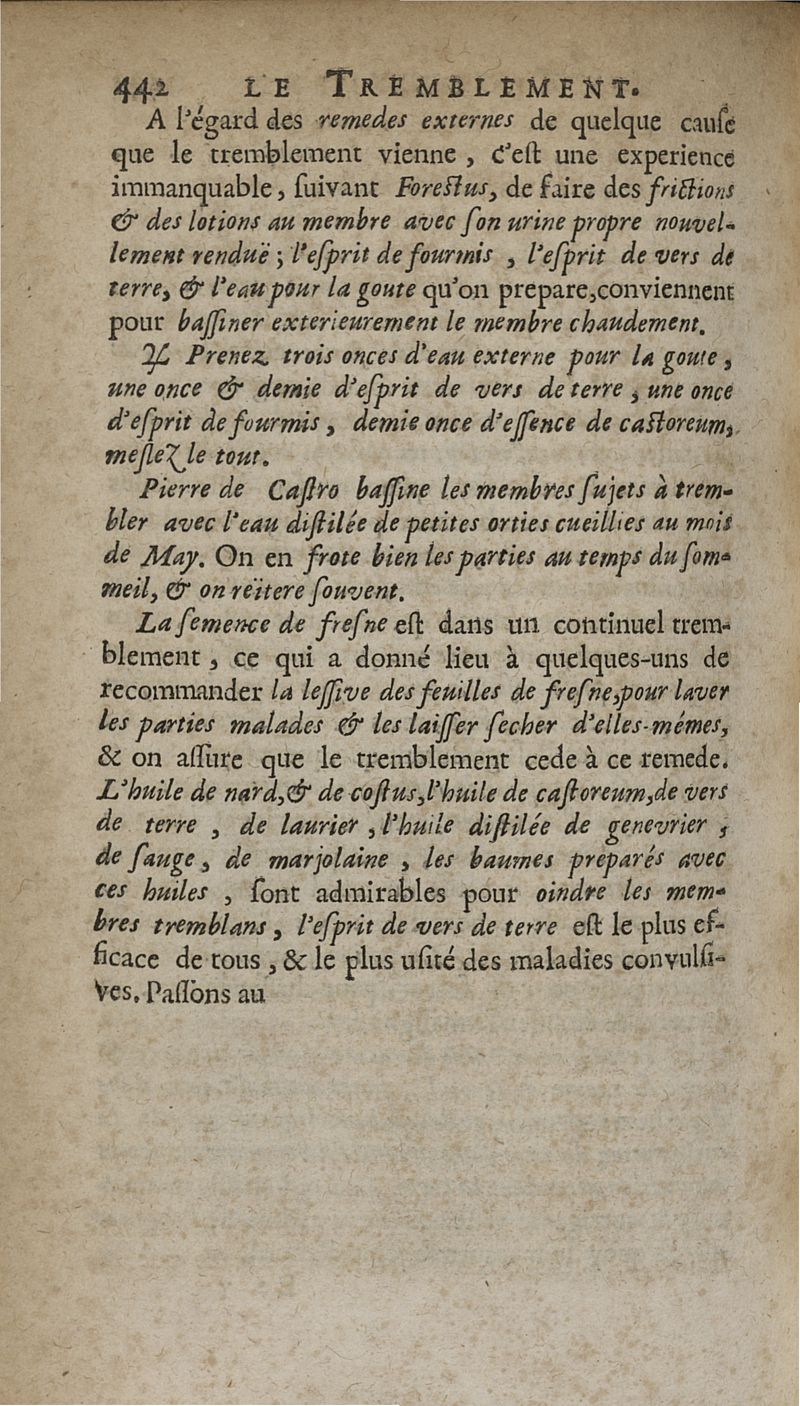 442 LE TREMBLEMENT.
A l'égard des remedes externes de quelque cauſe
que le tremblement vienne , c'eſt une experience
immanquable, ſuivant Foreſtus, de faire des frictions
& des lotions au membre avec ſon urine propre nouvel-
lement renduë ; l'eſprit de fourmis , l'eſprit de vers de
terre, & l'eau pour la goute qu'on prepare,conviennent
pour baſſiner exterieurement le membre chaudement.
♃ Prenez trois onces d'eau externe pour la goute ,
une once & demie d'eſprit de vers de terre , une once
d'eſprit de fourmis , demie once d'eſſence de caſtoreum,
meſlez le tout.
Pierre de Caſtro baſſine les membres ſujets à trem-
bler avec l'eau diſtilée de petites orties cueillies au mois
de May. On en frote bien les parties au temps du ſom-
meil, & on reïtere ſouvent.
La ſemence de freſne eſt dans un continuel trem-
blement , ce qui a donné lieu à quelques-uns de
recommander la leſſive des feuilles de freſne,pour laver
les parties malades & les laiſſer ſecher d'elles-mémes,
& on aſſure que le tremblement cede à ce remede.
L'huile de nard,& de coſtus,l'huile de caſtoreum,de vers
de terre , de laurier , l'huile diſtilée de genevrier ,
de ſauge , de marjolaine , les baumes preparés avec
ces huiles , ſont admirables pour oindre les mem-
bres tremblans , l'eſprit de vers de terre eſt le plus ef-
ficace de tous , & le plus uſité des maladies convulſi-
ves. Paſſons au